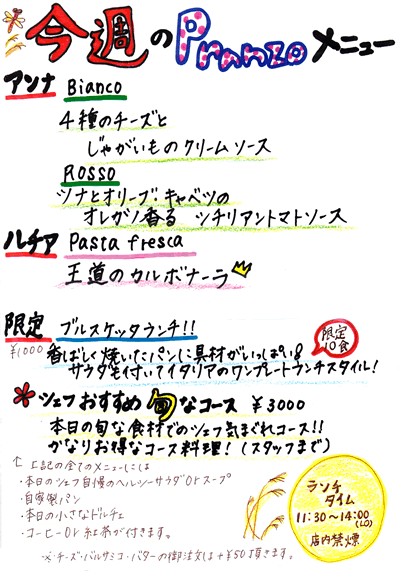 今週のPranzoメニュー
アンナ Bianco
4種のチーズと
じゃがいものクリームソース
Rosso
ツナとオリーブ・キャベツの
オレガノ香る シチリアントマトソース
ルチア Pasta fresca
王道のカルボナーラ
限定 ブルスケッタランチ!!
限定
10食
¥1000 香ばしく焼いたパンに具材がいっぱい!
サラダも付いてイタリアのワンプレートランチスタイル!
*シェフおすすめ旬なコース ¥3000
本日の旬な食材でのシェフ気まぐれコース!!
かなりお得なコース料理!(スタッフまで)
↑上記の全てのメニューには
・本日のシェフ自慢のヘルシーサラダorスープ
・自家製パン
・本日の小さなドルチェ
・コーヒーor紅茶が付きます。
※チーズ・バルサミコ・バターの御注文は+¥50頂きます。
ランチ
タイム
11:30〜14:00
(LO)
店内禁煙